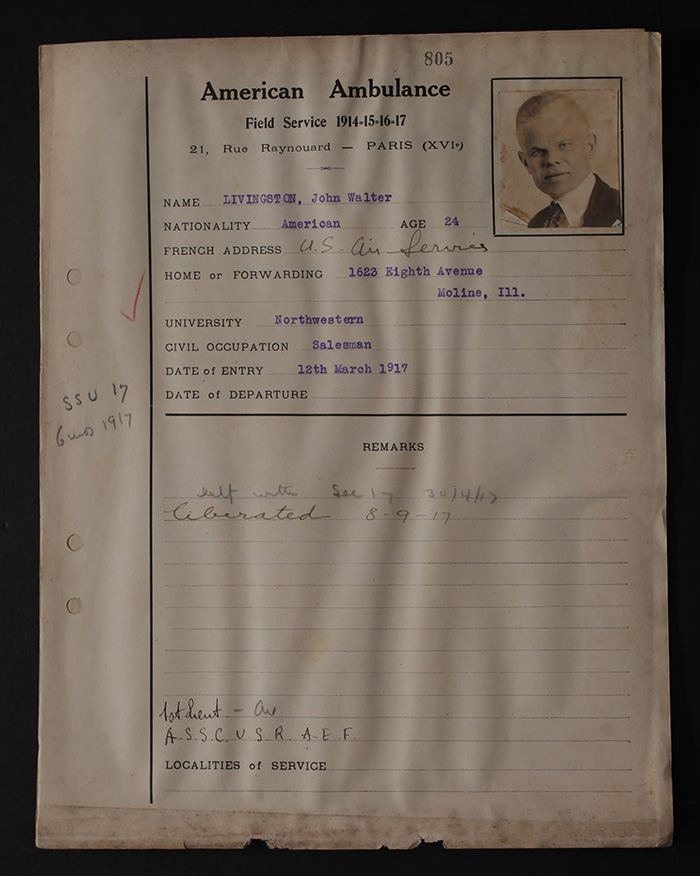 805
American Ambulance
Field Service 1914-15-16-17
21, Rue Raynouard — PARIS (XVIe)
NAME LIVINGSTON, John Walter
NATIONALITY American AGE 24
FRENCH ADDRESS U.S. Air Service
HOME or FORWARDING 1623 Eighth Avenue
Moline, Ill.
UNIVERSITY Northwestern
CIVIL OCCUPATION Salesman
DATE of ENTRY 12th March 1917
DATE of DEPARTURE
SSU 17
6 mos 1917
REMARKS
left with Sec 17 30/4/17
Liberated 8-9-17
1st Lieut - Av
A.S.S.C.U.S.R. A.E.F.
LOCALITIES of SERVICE